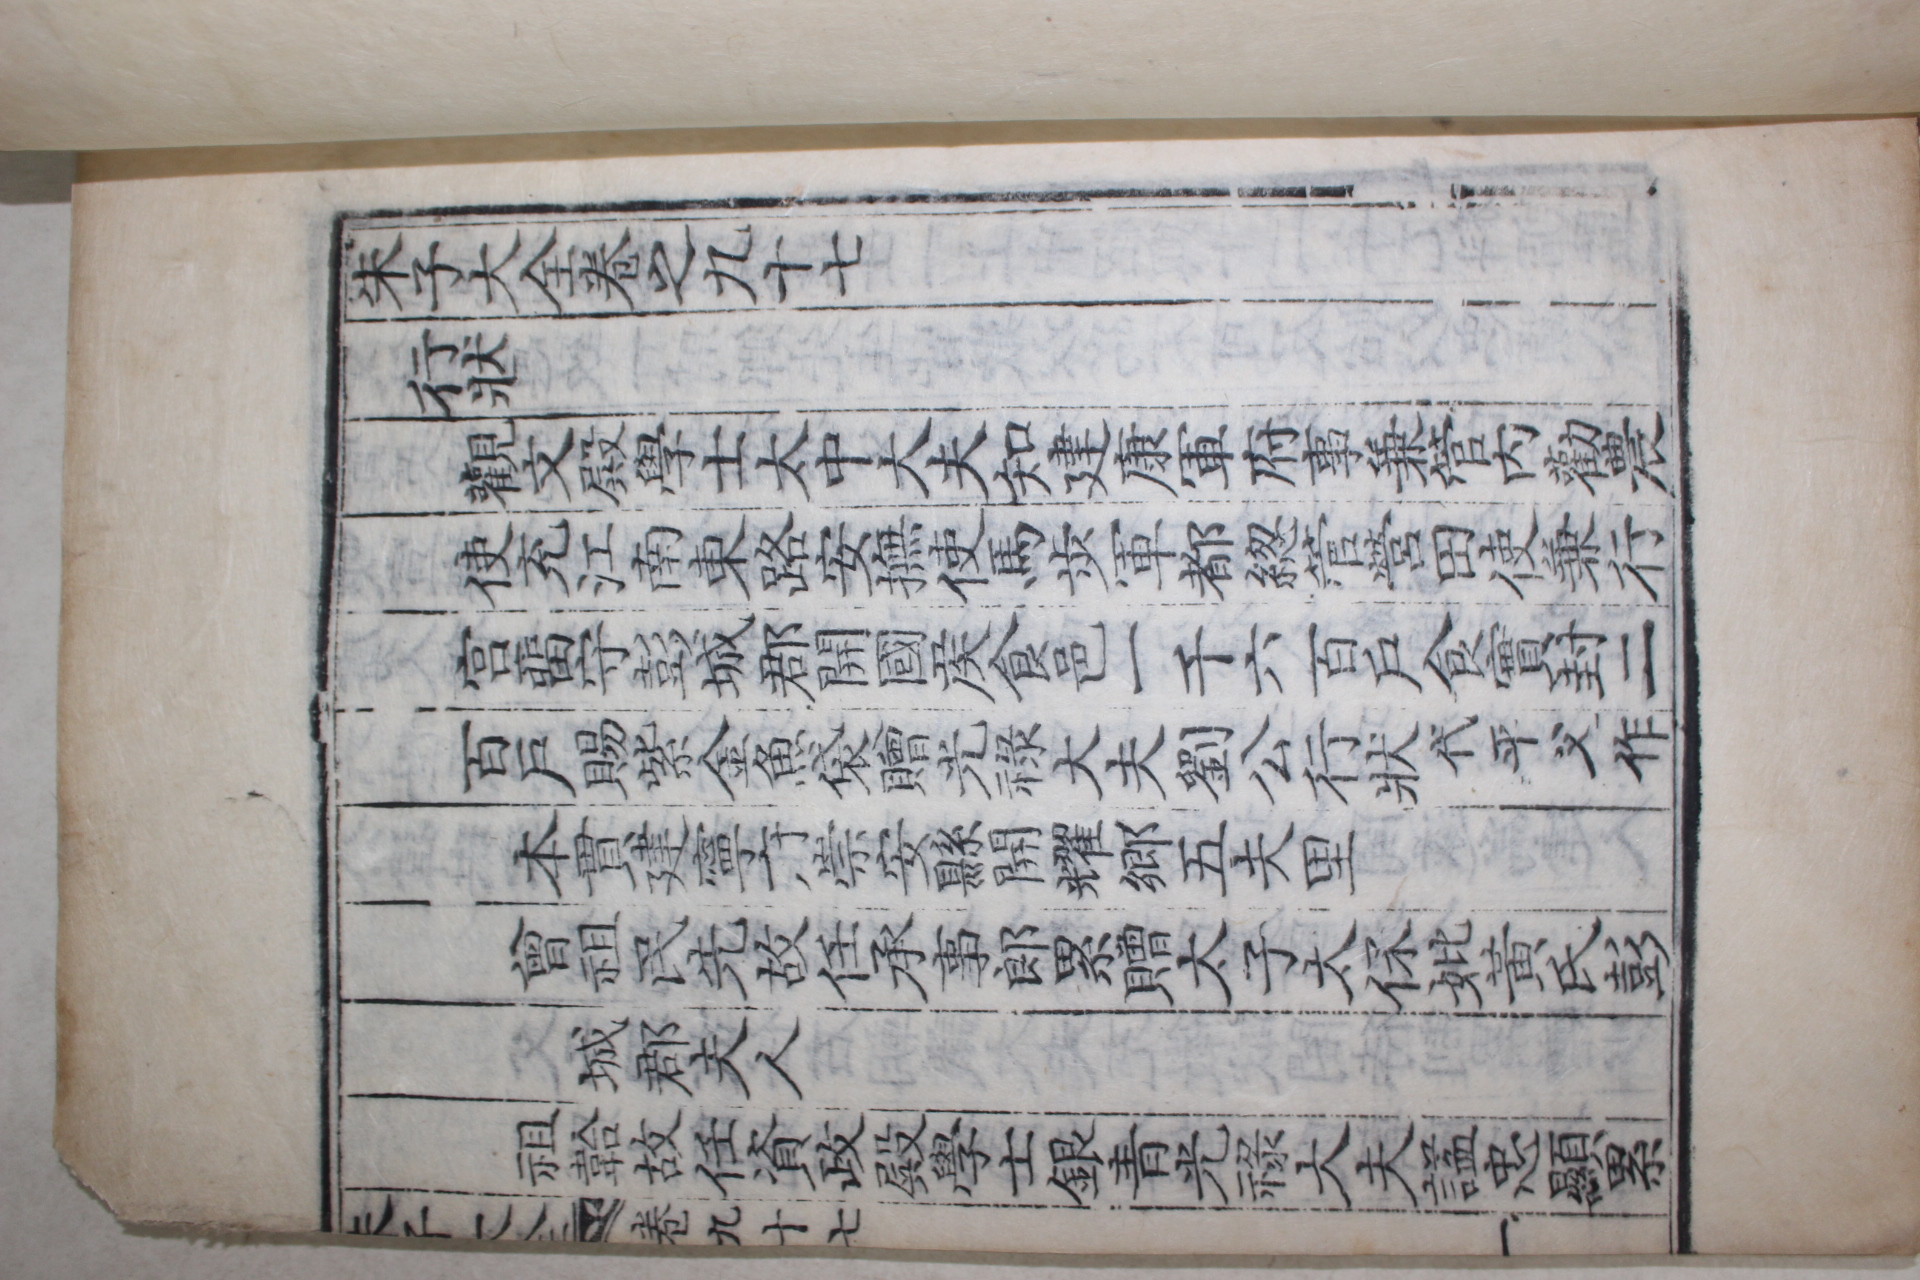 朱子大全卷之九十七
行狀
觀文殿學士太中大夫知建康軍府事兼管內勸農
使充江南東路安撫使馬步軍都緫管營田使兼行
宮留守彭城郡開國侯食邑一千六百戶食實封二
百戶賜紫金魚袋贈光祿大夫劉公行狀代平父作
本貫建寧府崇安縣開耀鄉五夫里
曾祖民先故任承事郎累贈太子太保妣黃氏彭
城郡夫人
祖韐故任資政殿學士銀青光祿大夫謚忠顯累
朱子大全 卷九十七 一